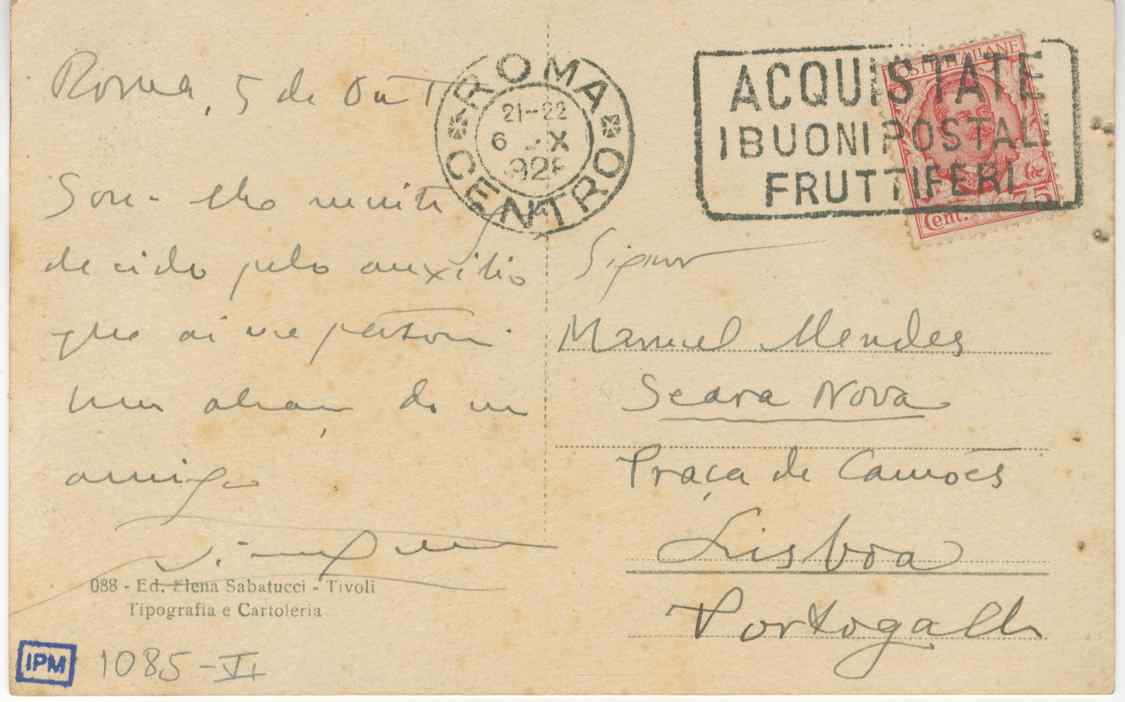 Roma, 5 de Out
ROMA CENTRO
21-22
6 X
1928
ACQUISTATE
I BUONI POSTALI
FRUTTIFERI
POSTE ITALIANE
Cent. 75
Sou-lhe muito
decido pelo auxilio
que ai me
Um abraço de um
amigo
Signor
Manuel Mendes
Seara Nova
Praça de Camões
Lisboa
Portogallo
088 - Ed. Elena Sabatucci - Tivoli
Tipografia e Cartoleria
IPM
1085-VI